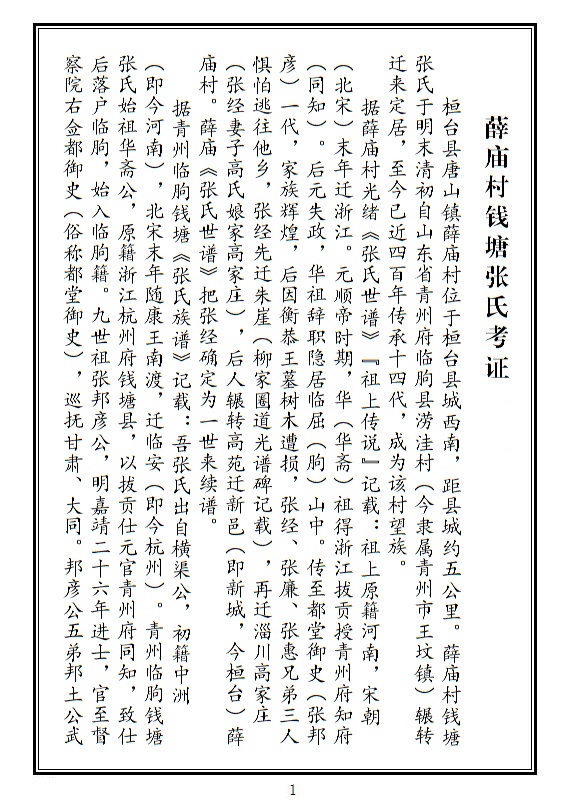 薛庙村钱塘张氏考证
桓台县唐山镇薛庙村位于桓台县城西南，距县城约五公里。薛庙村钱塘
张氏于明末清初自山东省青州府临朐县涝洼村（今隶属青州市王坟镇）辗转
迁来定居，至今已近四百年传承十四代，成为该村望族。
据薛庙村光绪《张氏世谱》『祖上传说』记载：祖上原籍河南，宋朝
（北宋）末年迁浙江。元顺帝时期，华（华斋）祖得浙江拔贡授青州府知府
（同知）。后元失政，华祖辞职隐居临屈（朐）山中。传至都堂御史（张邦
彦）一代，家族辉煌，后因衡恭王墓树木遭损，张经、张廉、张惠兄弟三人
惧怕逃往他乡，张经先迁朱崖（柳家圈道光谱碑记载），再迁淄川高家庄
（张经妻子高氏娘家高家庄），后人辗转高苑迁新邑（即新城，今桓台）薛
庙村。薛庙《张氏世谱》把张经确定为一世来续谱。
据青州临朐钱塘《张氏族谱》记载：吾张氏出自横渠公，初籍中洲
（即今河南），北宋末年随康王南渡，迁临安（即今杭州）。青州临朐钱塘
张氏始祖华斋公，原籍浙江杭州府钱塘县，以拔贡仕元官青州府同知，致仕
后落户临朐，始入临朐籍。九世祖张邦彦公，明嘉靖二十六年进士，官至督
察院右佥都御史（俗称都堂御史），巡抚甘肃、大同。邦彦公五弟邦土公武
1